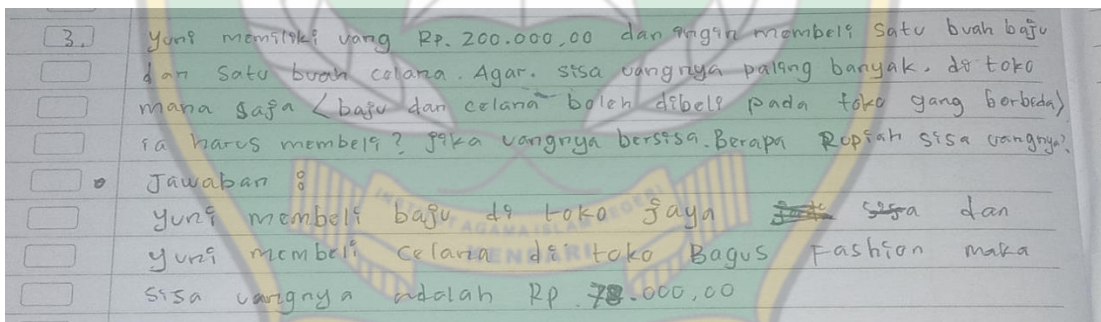 3. Yuni memiliki uang Rp. 200.000,00 dan ingin membeli satu buah baju
dan satu buah celana. Agar. sisa uangnya paling banyak. di toko
mana saja (baju dan celana boleh dibeli pada toko yang berbeda)
ia harus membeli? jika uangnya bersisa. Berapa Rupiah sisa uangnya?
Jawaban :
yuni membeli baju di toko jaya dan
yuni membeli celana di toko Bagus Fashion maka
sisa uangnya adalah Rp. 78.000,00
INSTITUT AGAMA ISLAM NEGERI
KENDARI